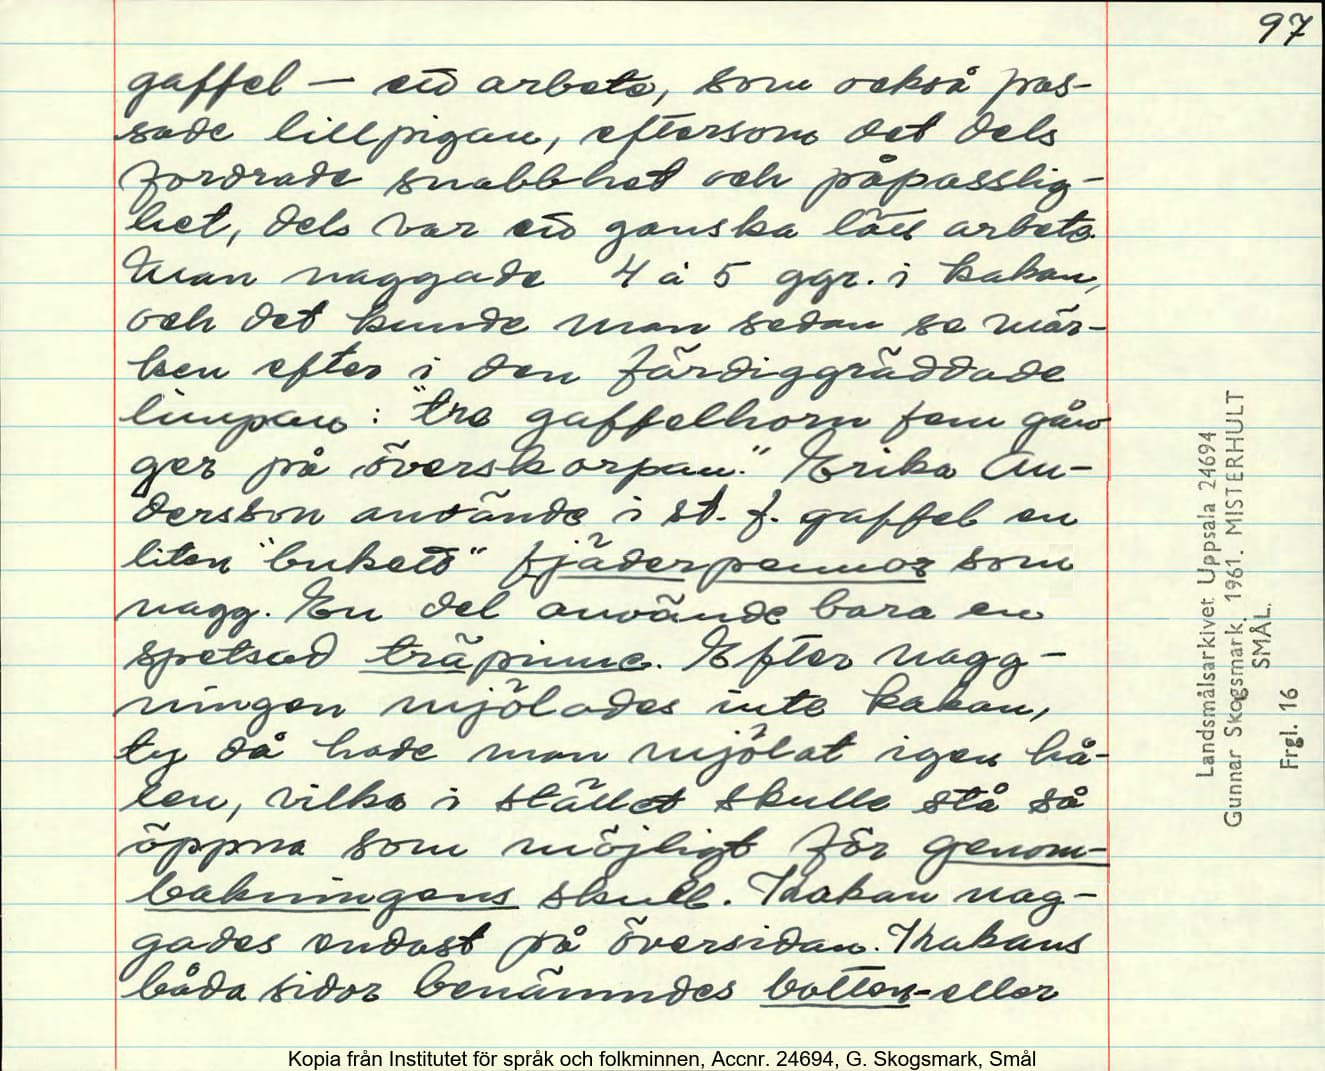 97
gaffel – ett arbete, som också pas-
sade lillpigan, eftersom det dels
fordrade snabbhet och påpasslig-
het, dels var ett ganska lätt arbete.
Man naggade 4 à 5 ggr. i kakan,
och det kunde man sedan se mär-
ken efter i den färdiggräddade
limpan: "tre gaffelhorn fem gån-
ger på överskorpan." Erika An-
dersson använde i st. f. gaffel en
liten "bukett" fjäderpennor som
nagg. En del använde bara en
spetsad träpinne. Efter nagg-
ningen mjölades inte kakan,
ty då hade man mjölat igen hå-
len, vilka i stället skulle stå så
öppna som möjligt för genom-
bakningens skull. Kakan nag-
gades endast på översidan. Kakans
båda sidor benämndes botten- eller
Landsmålsarkivet Uppsala 24694
Gunnar Skogsmark. 1961. MISTERHULT
SMÅL.
Frgl. 16
Kopia från Institutet för språk och folkminnen, Accnr. 24694, G. Skogsmark, Smål